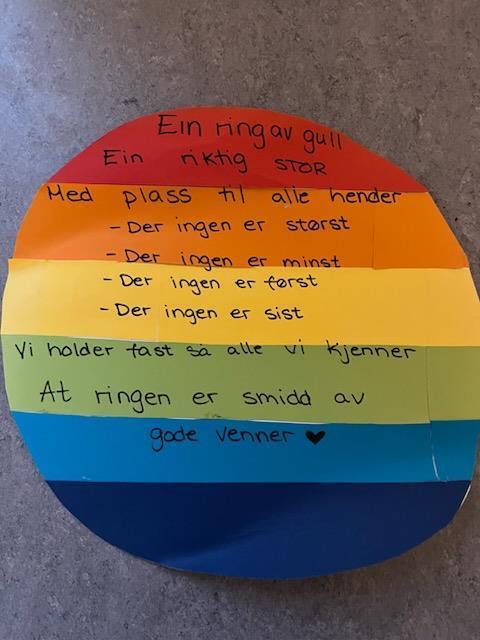 Ein ring av gull
Ein riktig STOR
Med plass til alle hender
- Der ingen er størst
- Der ingen er minst
- Der ingen er først
- Der ingen er sist
Vi holder fast så alle vi kjenner
At ringen er smidd av
gode venner ♥